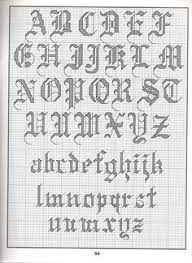 ABCDEF
GHIJKLM
NOPQRST
UUMXYZ
abcdefghijk
lmnopqrst
uumxyz
34